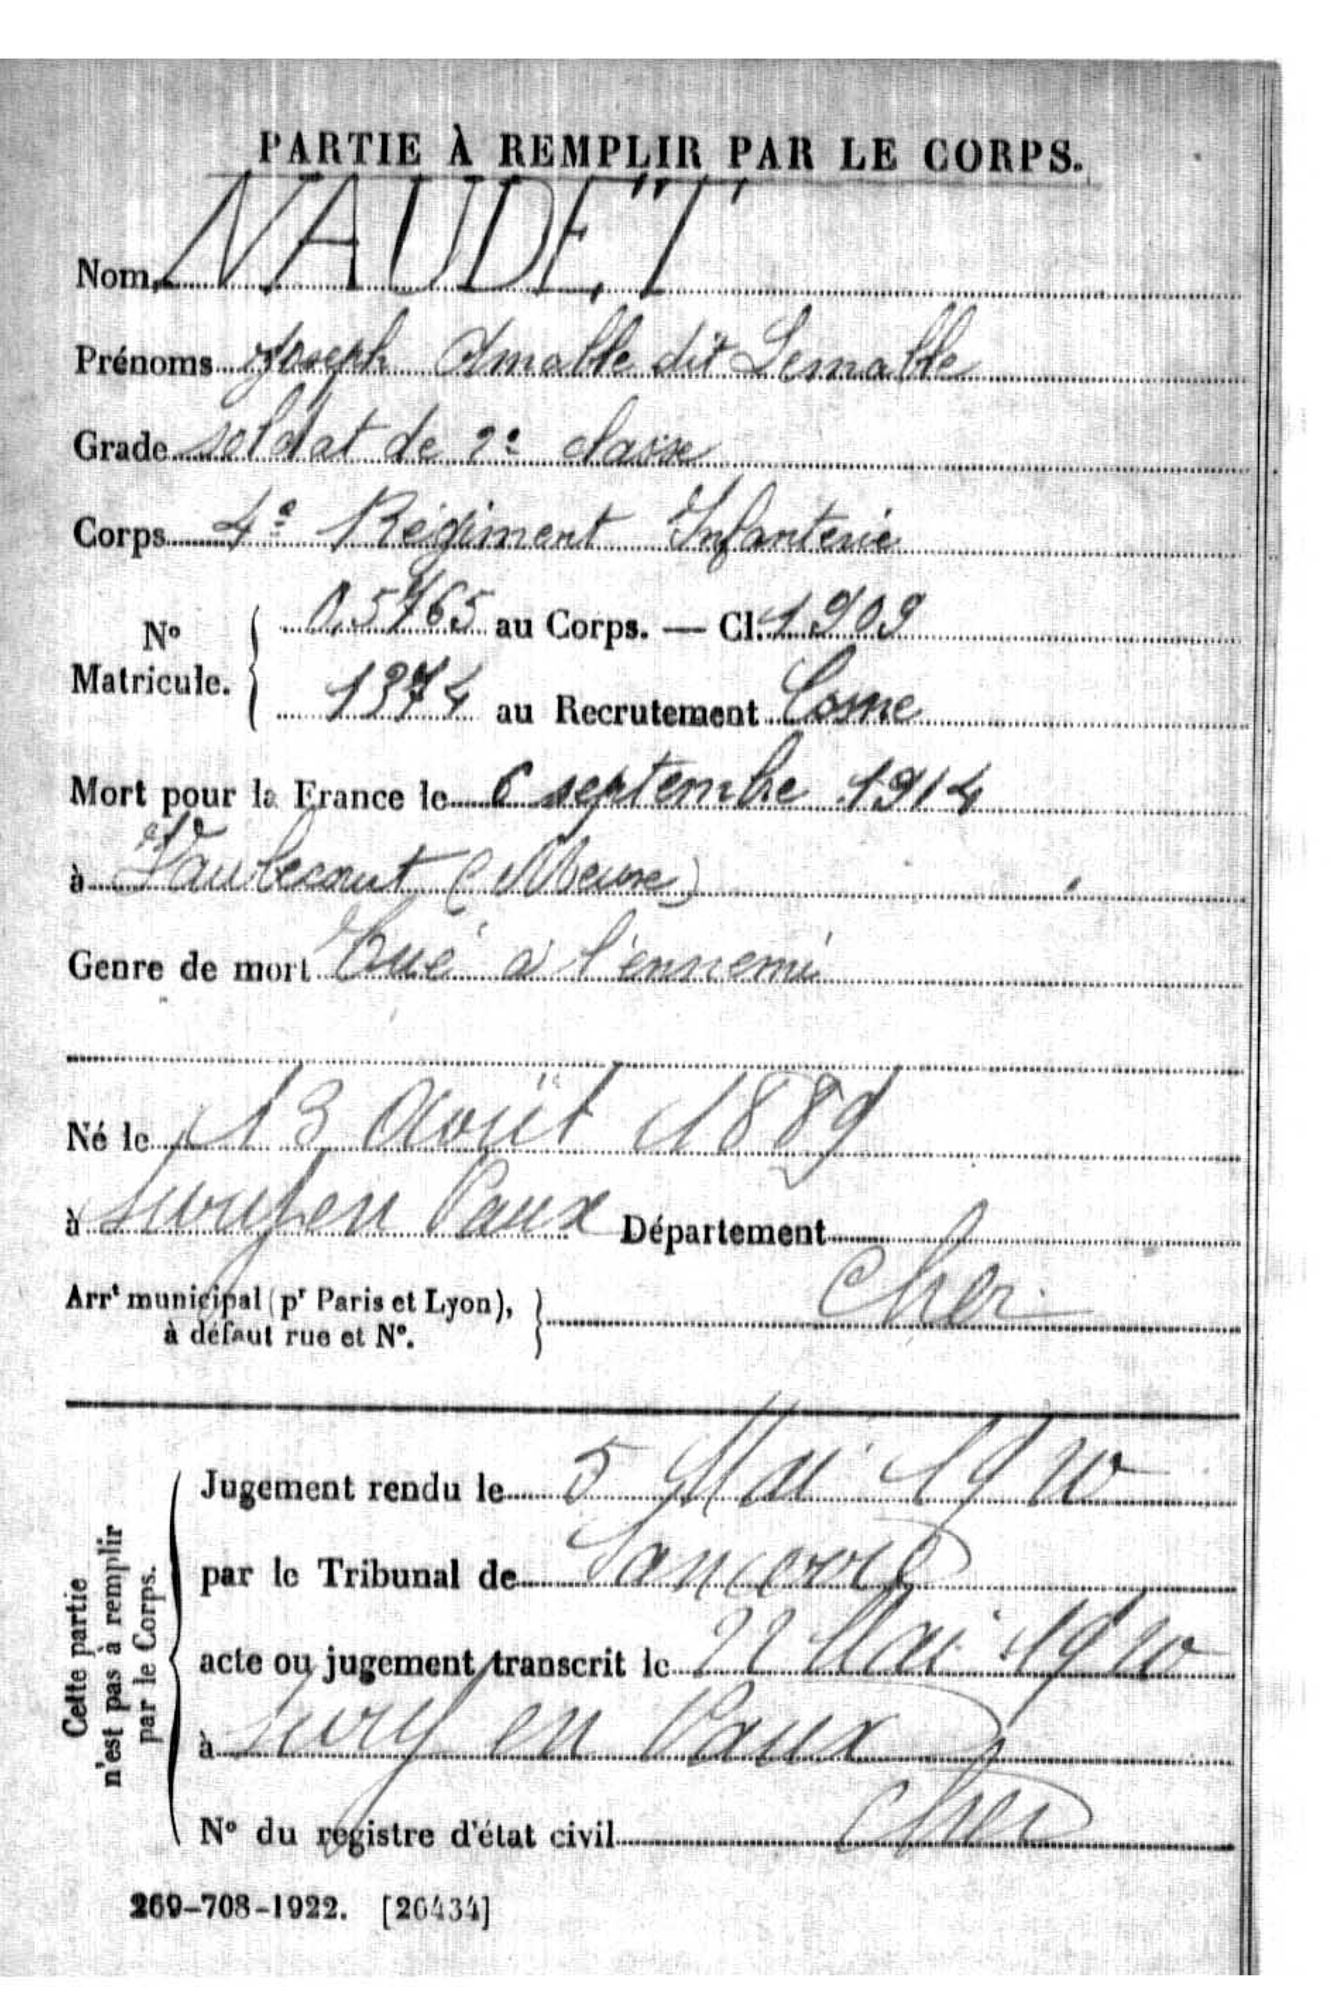 PARTIE À REMPLIR PAR LE CORPS.
Nom NAUDET
Prénoms Joseph Amable dit Lemable
Grade soldat de 2e classe
Corps 4e Régiment Infanterie
No Matricule. { 0,5765 au Corps. — Cl. 1909
1374 au Recrutement Cosne
Mort pour la France le 6 septembre 1914
à Vaubecourt (Meuse)
Genre de mort Tué à l'ennemi
Né le 13 Août 1889
à Sury en Vaux Département
Cher
Arrt municipal (pr Paris et Lyon),
à défaut rue et No.
Cette partie
n'est pas à remplir
par le Corps.
Jugement rendu le 5 Mai 1920
par le Tribunal de Sancerre
acte ou jugement transcrit le 22 Mai 1920
à Sury en Vaux
No du registre d'état civil Cher
269-708-1922. [26434]